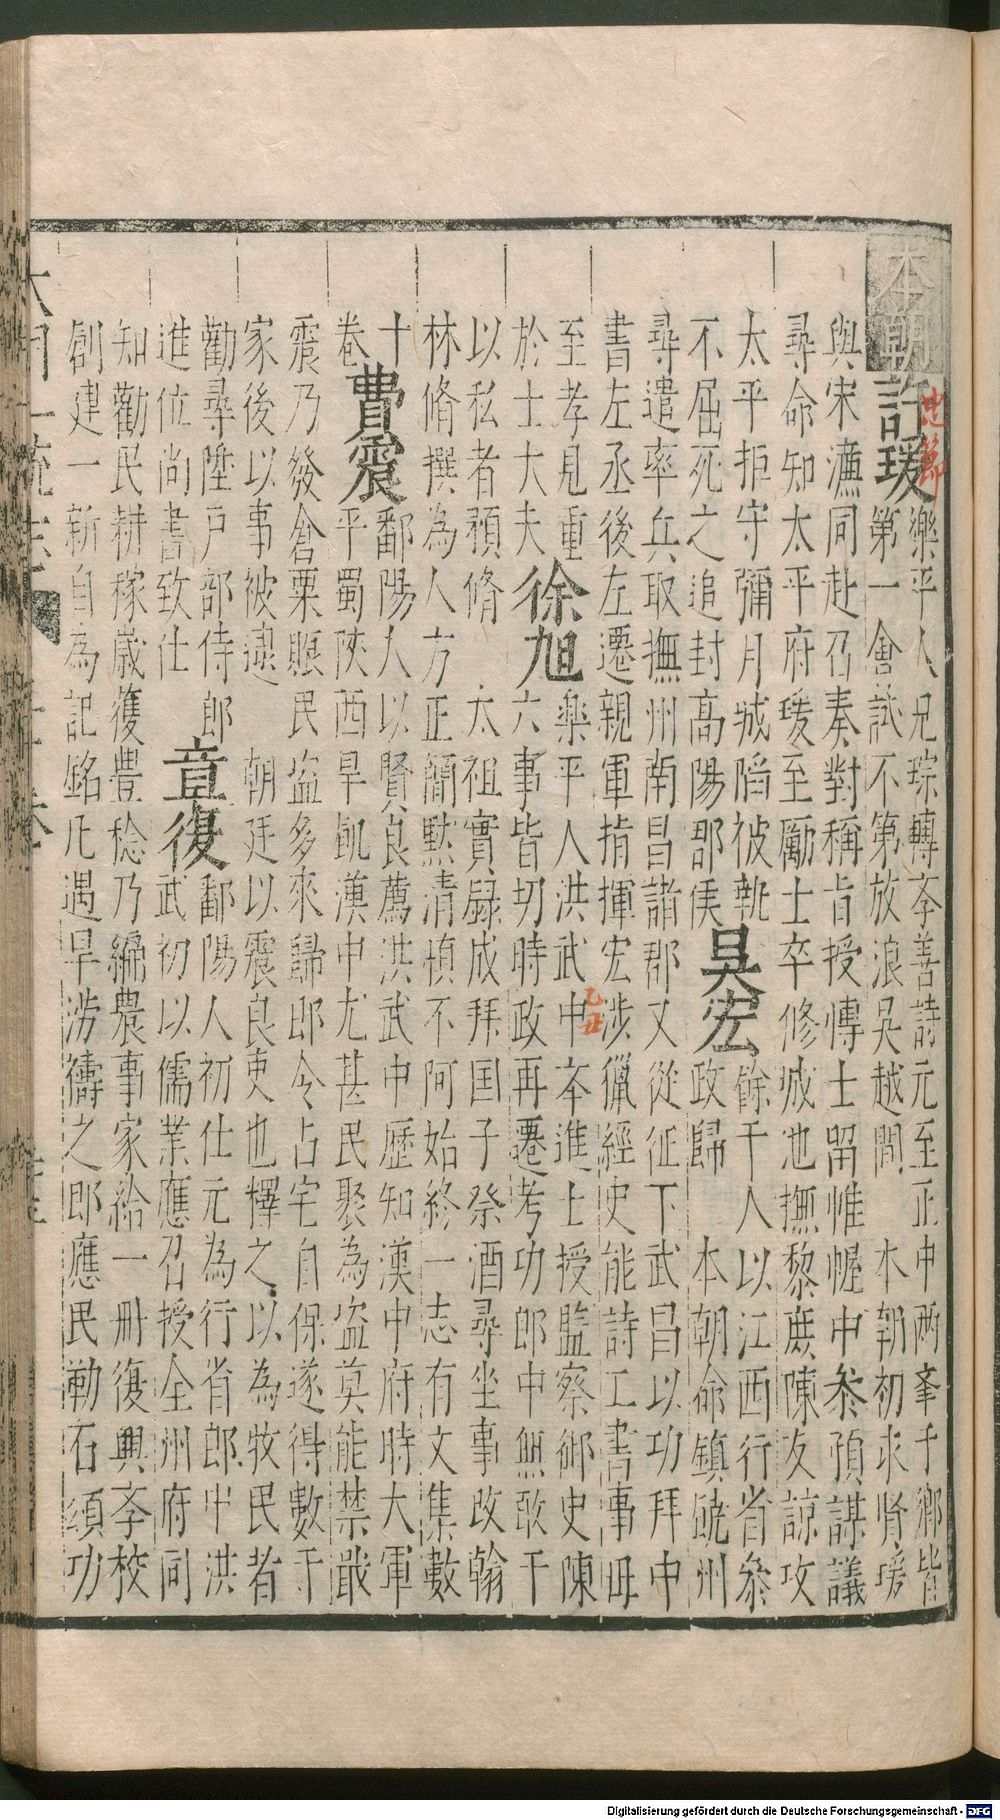 忠節
本朝許瑗樂平人兄琮轉斈善詩元至正中兩舉于鄉皆
第一會試不第放浪吳越間 本朝初求賢瑗
與宋濂同赴召奏對稱旨授博士留惟幄中叅預謀議
尋命知太平府瑗至勵士卒修城池撫黎庶陳友諒攻
太平拒守彌月城陷被執
不屈死之追封高陽郡侯
吳宏
餘干人以江西行省叅
政歸 本朝命鎮饒州
尋遣率兵取撫州南昌諸郡又從征下武昌以功拜中
書左丞後左遷親軍指揮宏涉獵經史能詩工書事毋
至孝見重
於士大夫
徐旭
樂平人洪武中斈進士授監察御史陳
乙丑
六事皆切時政再遷考功郎中無敢干
以私者預脩 太祖實録成拜国子祭酒尋坐事改翰
林脩撰為人方正簡黙清慎不阿始終一志有文集數
十
卷
費震
鄱陽人以賢良薦洪武中歷知漢中府時大軍
平蜀陝西旱飢漢中尤甚民聚為盗莫能禁戢
震乃發倉粟賑民盗多來歸即令占宅自保遂得數千
家後以事被逮 朝廷以震良吏也釋之以為牧民者
勸尋陞戶部侍郎
進位尚書致仕
章復
鄱陽人初仕元為行省郎中洪
武初以儒業應召授全州府同
知勸民耕稼歲獲豐稔乃編農事家給一冊復興斈校
創建一新自為記銘凡遇旱澇禱之即應民勒石頌功
大明一統志
Digitalisierung gefördert durch die Deutsche Forschungsgemeinschaft - DFG